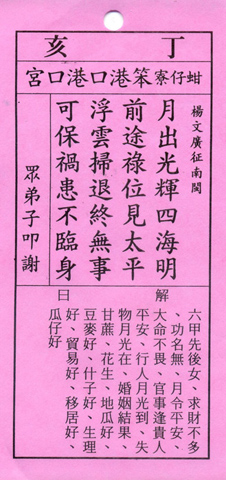 丁亥
蚶仔寮笨港口港口宮
楊文廣征南閩
月出光輝四海明
前途祿位見太平
浮雲掃退終無事
可保禍患不臨身
眾弟子叩謝
解曰
六甲先後女、求財不多
、功名無、月令平安、
大命不畏、官事逢貴人
平安、行人月光到、失
物月光在、婚姻結果、
甘蔗、花生、地瓜好、
豆麥好、什子好、生理
好、貿易好、移居好、
瓜仔好